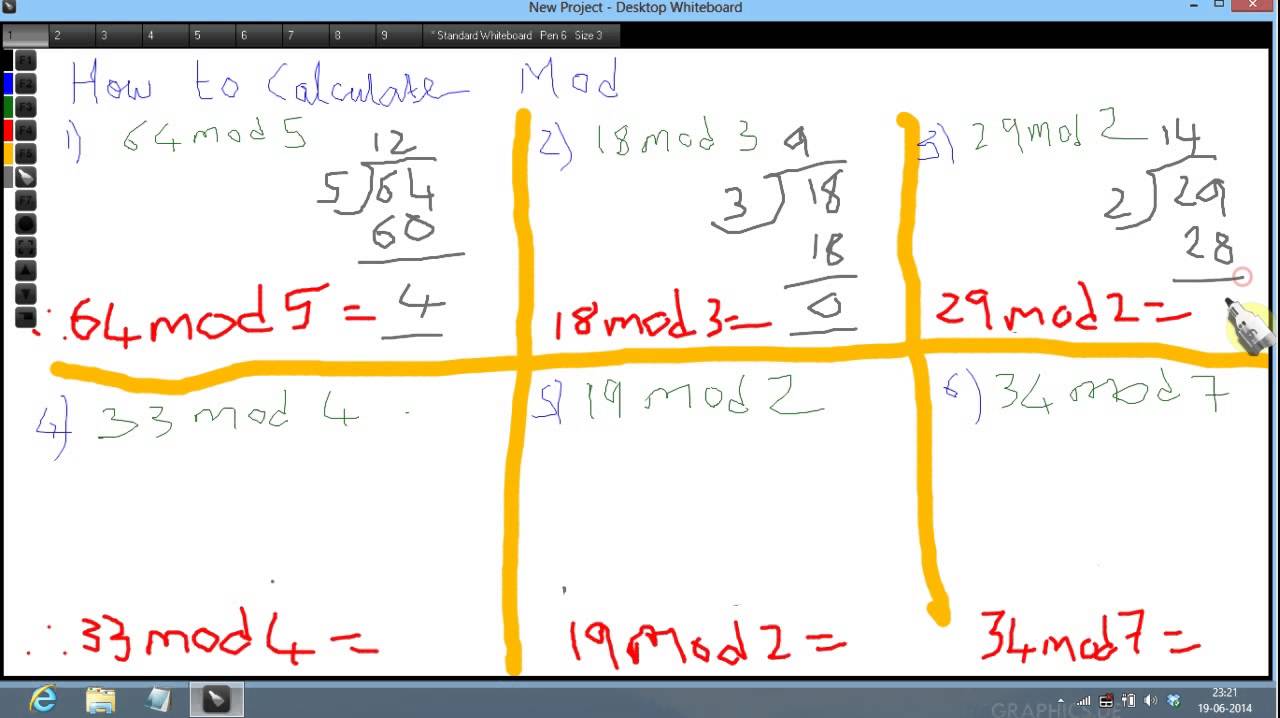 New Project - Desktop Whiteboard
1 2 3 4 5 6 7 8 9 * Standard Whiteboard Pen 6 Size 3
F1
F2
F3
F4
F5
F7
How to Calculate Mod
1) 64 mod 5
12
5 64
60
4
∴ 64 mod 5 =
2) 18 mod 3
9
3 18
18
0
18 mod 3 =
3) 29 mod 2
14
2 29
28
29 mod 2 =
4) 33 mod 4
∴ 33 mod 4 =
5) 19 mod 2
19 mod 2 =
6) 34 mod 7
34 mod 7 =
23:21
19-06-2014